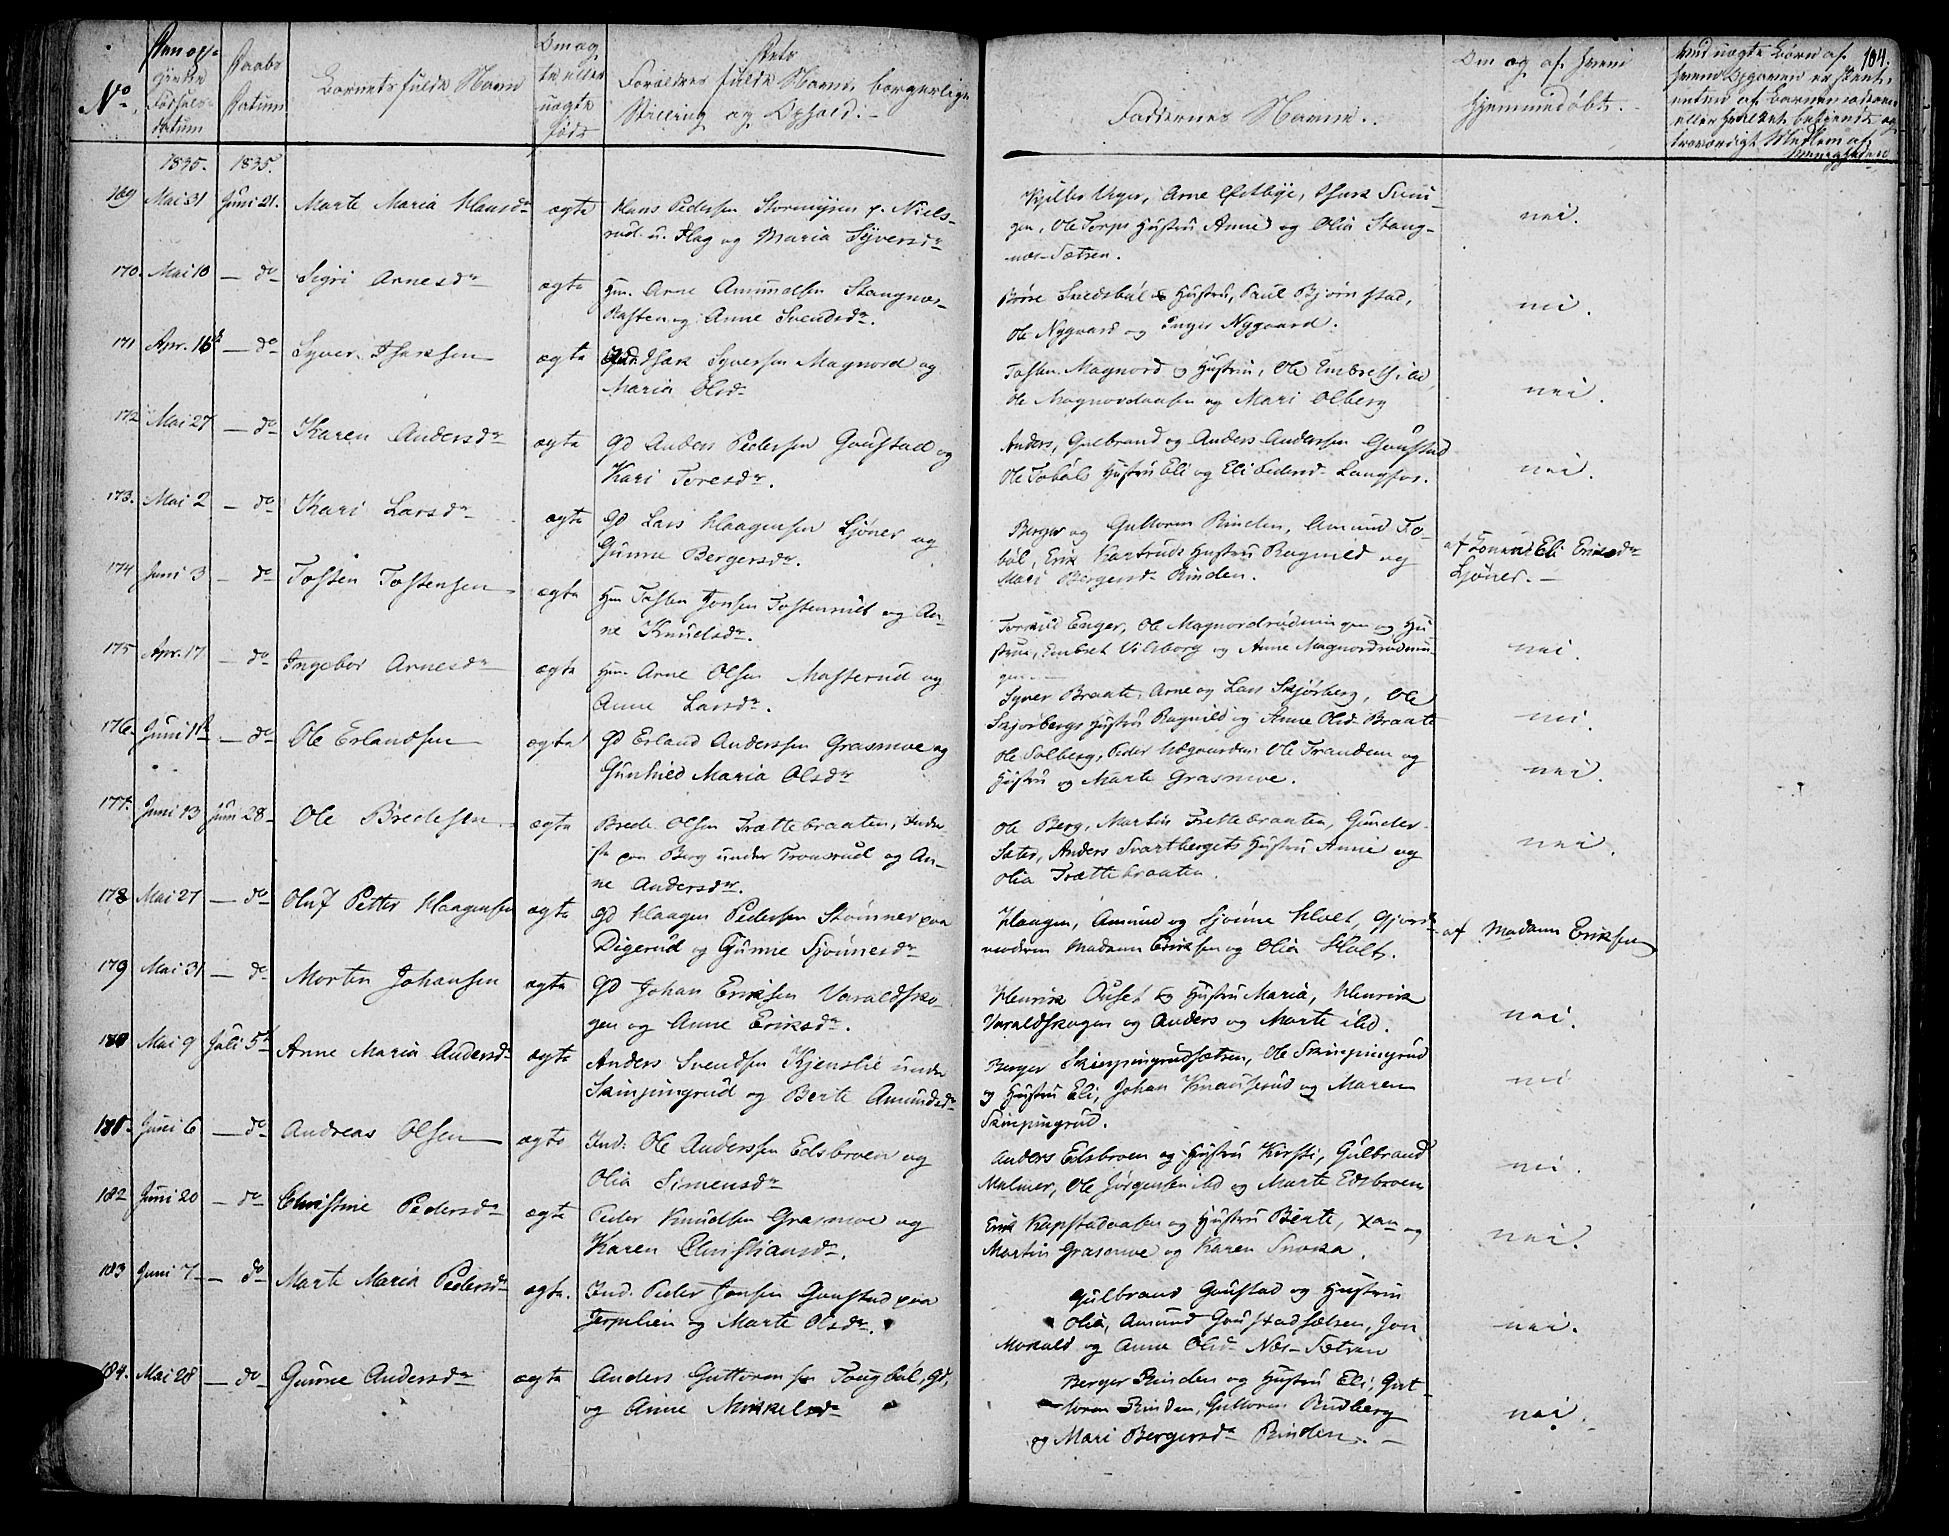 No.
Daabs
Datum
Barnets fulde Navn
Om ægte eller uægte født
Forældres fulde Navne, borgerlige
Stilling og Ophold.
Faddernes Navne.
Om og af hvem
hjemmedøbt.
104.
1835. 1835.
169 Mai 31 Juni 21. Marte Maria Hansdr ægte Hans Pedersen Stormyren p. Niels-
rud u. Flag og Maria Syversdr
Arne Østbye,
gen, Ole Torps Hustru Anne og Olia Stang-
næs-Sætren.
nei.
170. Mai 10 — do Sigri Arnesdr ægte Hm. Arne Amundsen Stangnæs-
kasten og Anne Svendsdr.
Hustru, Paul Bjørnstad,
Ole Nygaard og Inger Nygaard.
nei.
171 Apr. 16 — do Syver Isaksen ægte Isak Syversen Magnord og
Maria Olsdr
Tosten Magnord og Hustru, Ole Embretsen ibd,
Ole Magnordaasen og Mari Olberg
nei.
172 Mai 27 — do Karen Andersdr ægte Gd Anders Pedersen Goustad og
Kari Toresdr.
Anders, Gulbrand og Anders Andersen Goustad
Ole Tobøls Hustru Eli og Eli Pedersd. Langfos.
nei.
173. Mai 2 — do Kari Larsdr ægte Gd Lars Haagensen Sjøner og
Gunne Bergersdr.
Berger og Guttorm Rinden, Amund To-
bøl, Erik Hustru Ragnild og
Mari Bergersdr Rinden.
af Eli Eriksdr
Sjøner. —
174 Juni 3 — do Tosten Tostensen ægte Hm Tosten Jonsen Tostenrud og An-
ne Knudsdr.
Torkild Enger, Ole Magnordrødningen og Hu-
stru, Embret Vilberg og Anne Magnordrødnin-
gen
nei.
175 Apr. 17 — do Ingebor Arnesdr ægte Hm. Arne Olsen Masterud og
Anne Larsdr.
Syver Braate, Arne og Lars Skjørberg, Ole
Skjørbergs Hustru Ragnild og Anne Olsd. Braate
nei
176. Juni 11 — do Ole Erlandsen ægte Gd Erland Anderssen Grasmoe og
Gunhild Maria Olsdr
Ole Solberg, Peder Ole Trandem og
Hustru og Marte Grasmoe.
nei.
177. Juni 13 Juni 28 Ole Bredesen ægte Brede Olsen Trættebraaten, Inder-
ste paa Berg under Tronsrud og An-
ne Andersdr.
Ole Berg, Martin Trættebraaten, Gunder
Sæter, Anders Svartbergets Hustru Anne og
Olia Trættebraaten.
nei.
178 Mai 27 — do Oluf Petter Haagensen ægte Gd Haagen Pedersen Stømner paa
Digerud og Gunne Sjønnesdr
Haagen, Amund og Sjønne Holt, Gjord-
modren Madam Eriksen og Olia Holt.
af Madam Eriksen
179 Mai 31 — do Morten Johansen ægte Gd Johan Eriksen Varaldsko-
gen og Anne Eriksdr.
Henrik Ouset og Hustru Maria, Henrik
Varaldskogen og Anders og Marte ibd.
nei.
180 Mai 9 Juli 5 Anne Maria Andersdr ægte Anders Svendsen Kjenslie under
Skinpingrud og Berte Amundsdr
Berger Skinpingrudsætren, Ole Skinpingrud
og Hustru Eli, Johan Knauserud og Maren
Skinpingrud.
nei
181. Juni 6 — do Andreas Olsen ægte Ind: Ole Anderssen Edsbroen og
Olia Simensdr
Anders Edsbroen og Hustru Kirsti, Gulbrand
Malmer, Ole Jørgensen ibd og Marte Edsbroen
nei.
182 Juni 20 — do Christine Pedersdr ægte Peder Knudsen Grasmoe og
Karen Christiansdr.
Erik Kapstadaasen og Hustru Berte, Xan og
Martin Grasmoe og Karen
nei.
183 Juni 7 — do Marte Maria Pedersdr ægte. Ind. Peder Jonsen Goustad paa
Jerpelien og Marte Olsdr.
Gulbrand Goustad og Hustru
Olia, Amund Goustadsætren, Jon
Mokald og Anne Olsdr Næs-Sætren
nei.
184. Mai 28 — do Gunne Andersdr ægte Anders Guttormsen Tougbøl, Gd,
og Anne Mikkelsdr
Berger Rinden og Hustru Eli, Gut-
torm Rinden, Guttorm Rudberg
og Mari Bergersdr Rinden. —
nei.